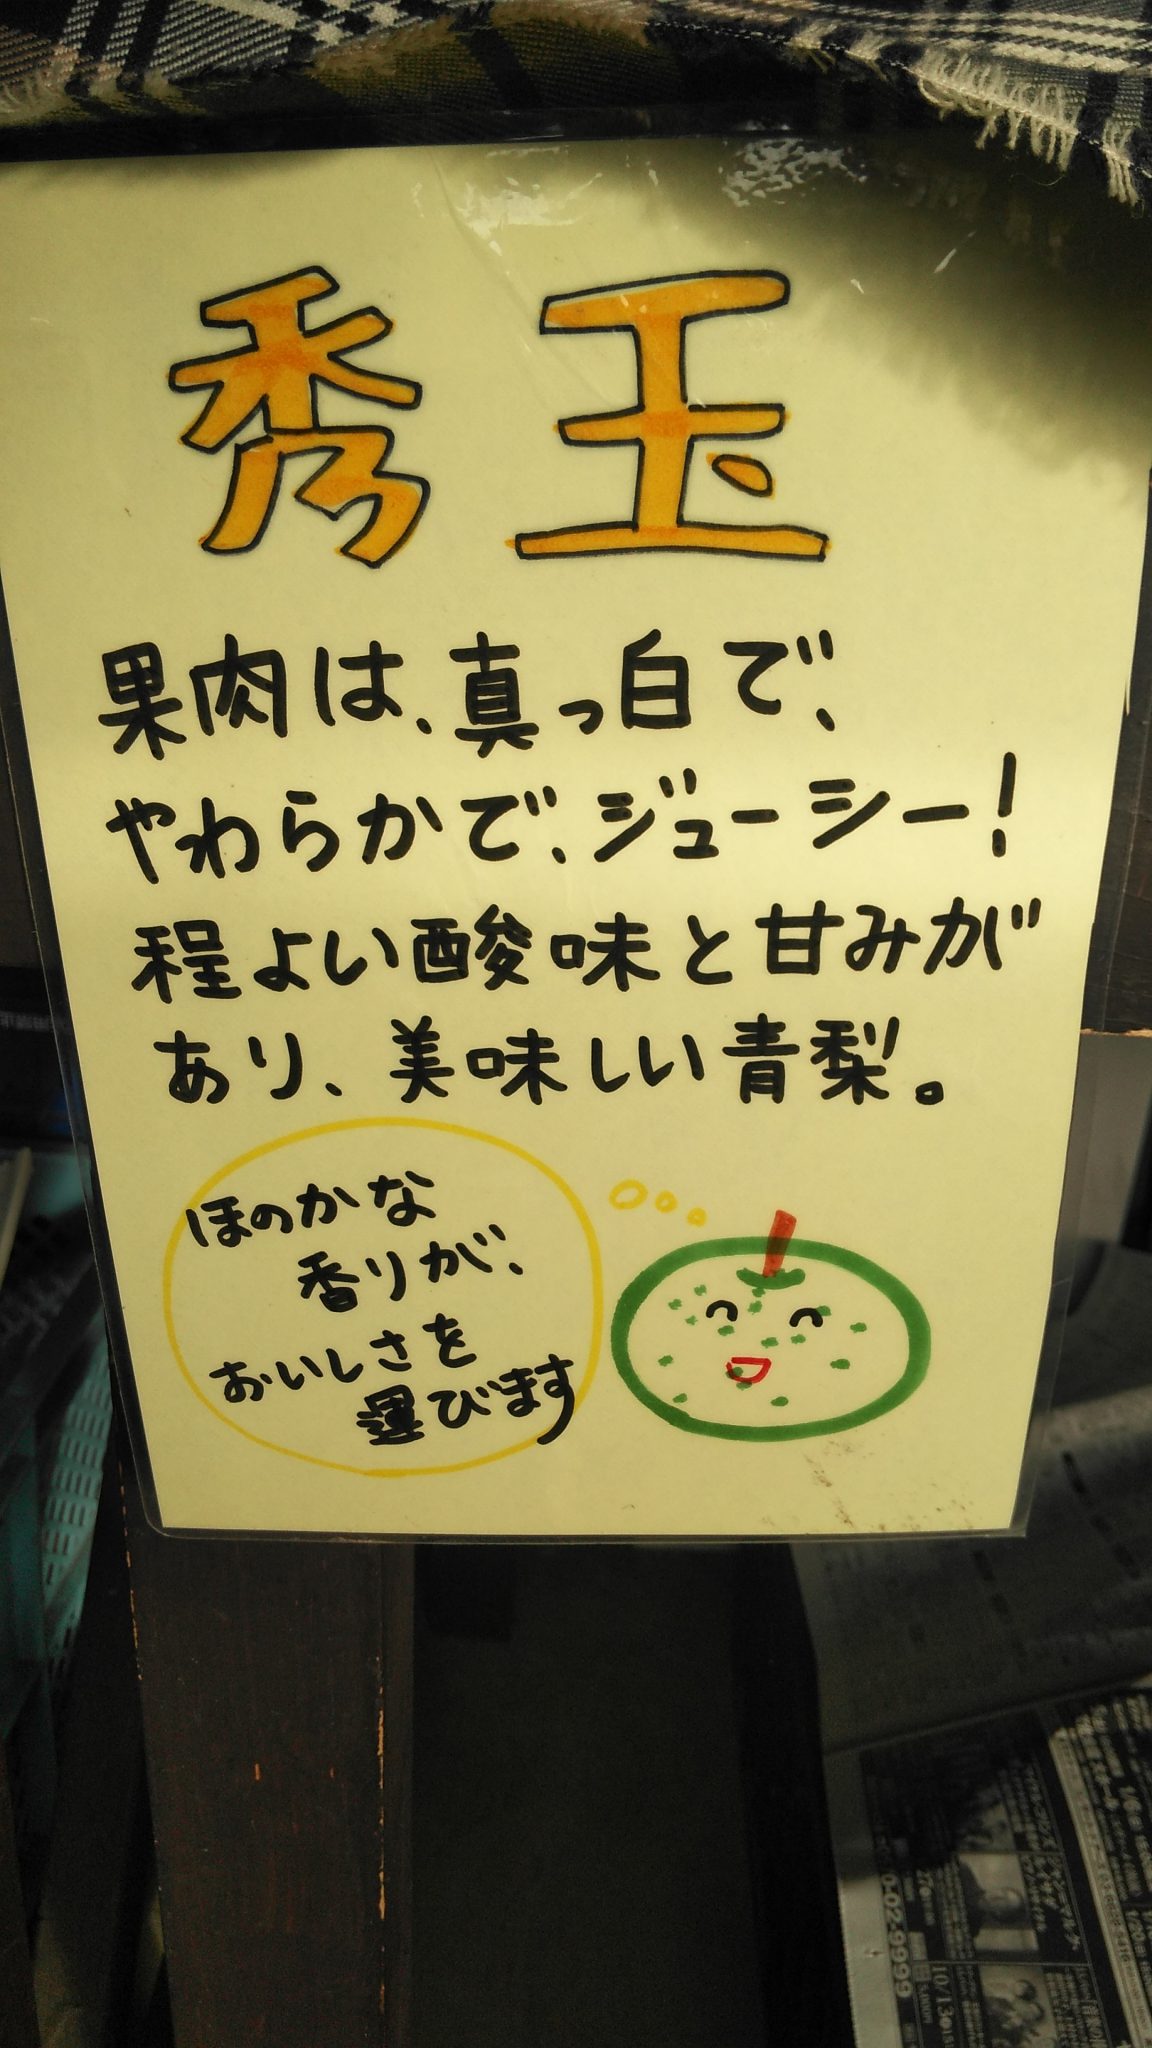 秀玉
果肉は、真っ白で、
やわらかで、ジューシー!
程よい酸味と甘みが
あり、美味しい青梨。
ほのかな
香りが、
おいしさを
運びます
0-02-9999
10/13